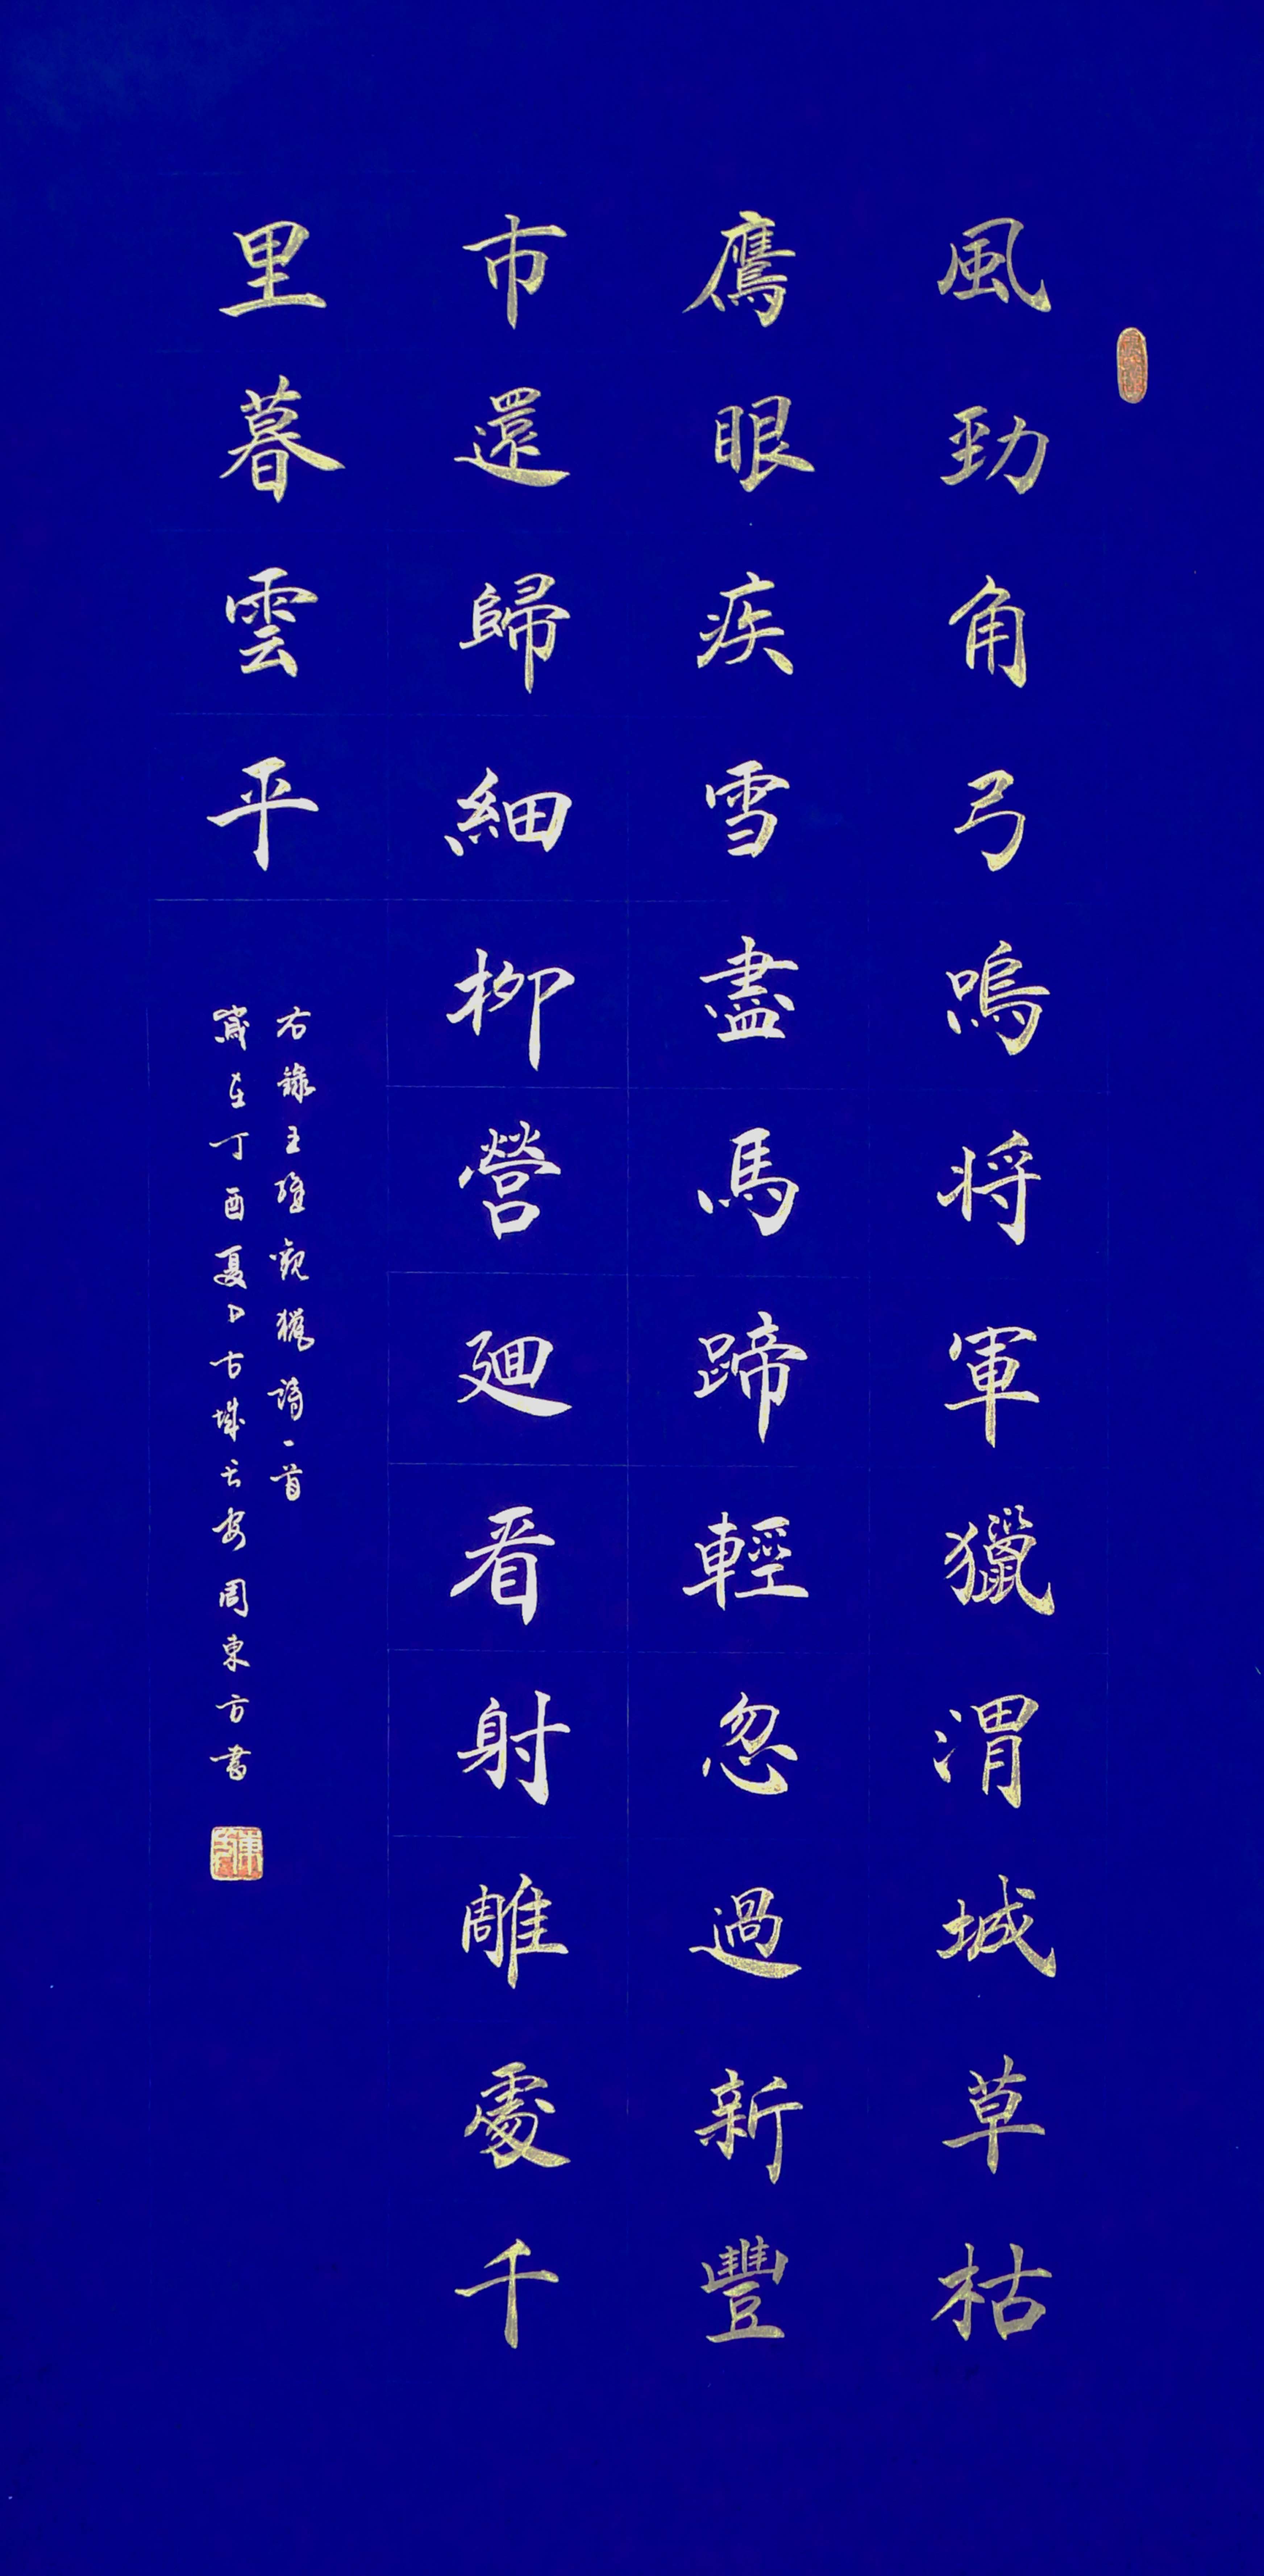 風勁角弓嗚将軍獵渭城草枯
鷹眼疾雪盡馬蹄輕忽過新豐
市還歸細柳營廻看射雕處千
里暮雲平
右錄王維觀獵詩一首
歲在丁酉夏日古城長安周東方書
東方